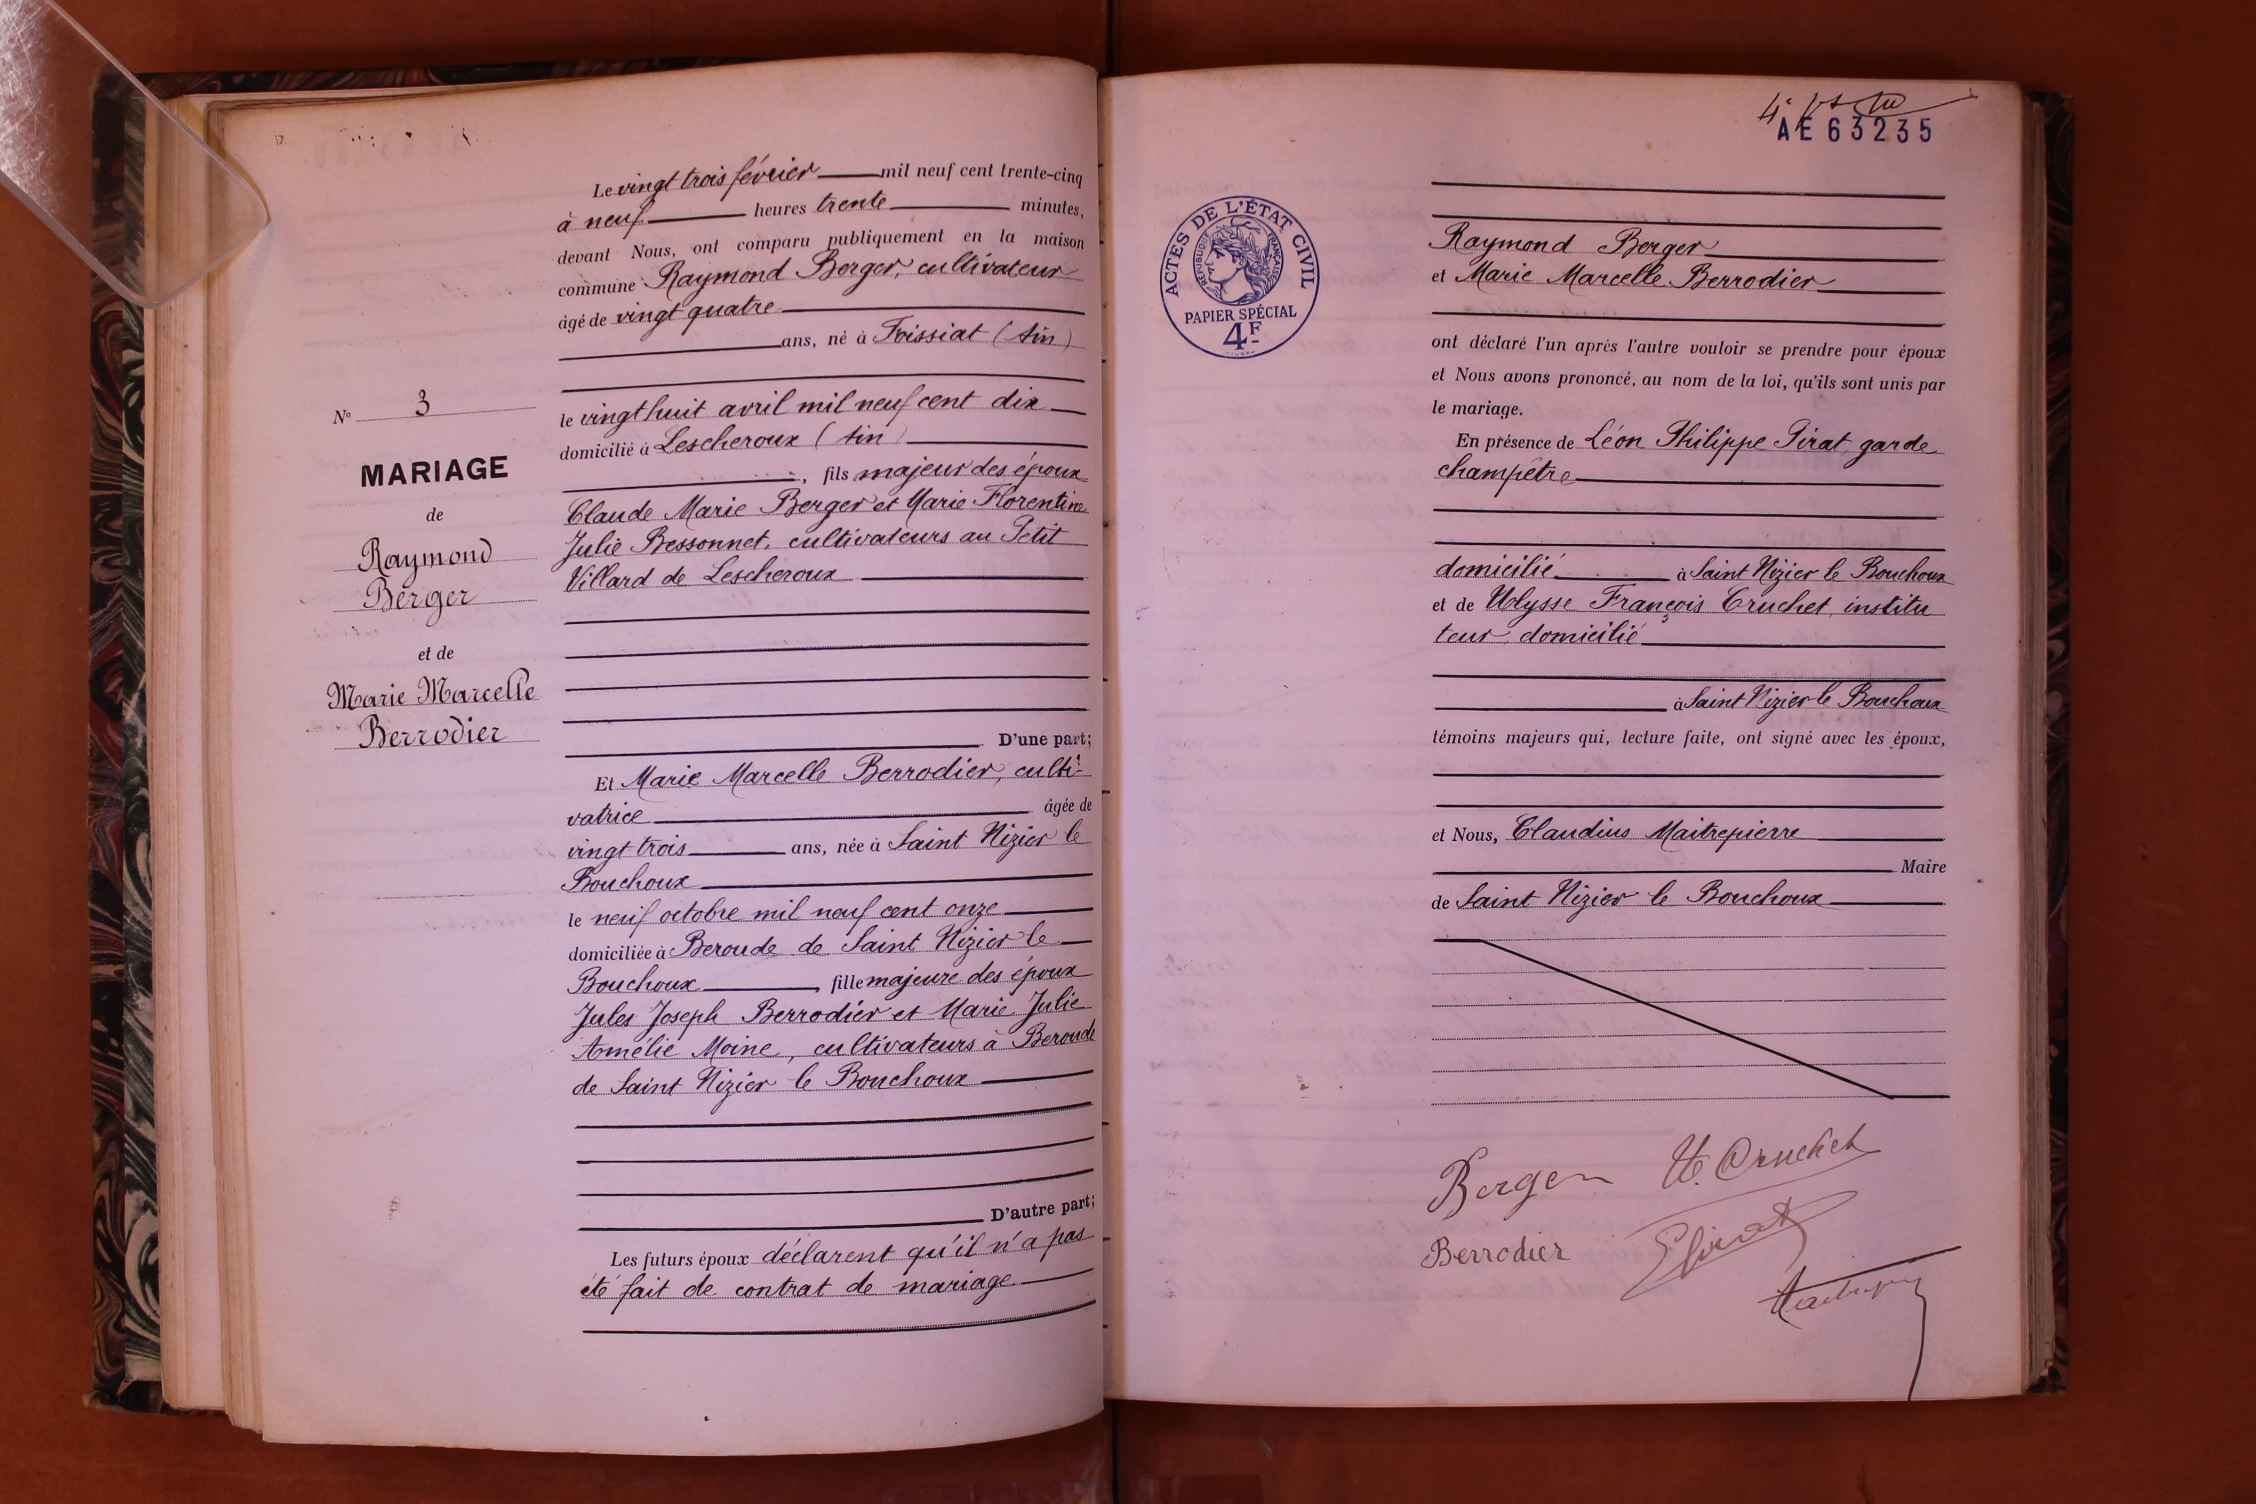 N° 3
MARIAGE
de
Raymond
Berger
et de
Marie Marcelle
Berrodier
Le vingt trois février mil neuf cent trente-cinq
à neuf heures trente minutes,
devant Nous, ont comparu publiquement en la maison
commune Raymond Berger, cultivateur
âgé de vingt quatre
ans, né à Foissiat (Ain)
le vingt huit avril mil neuf cent dix
domicilié à Lescheroux (Ain)
, fils majeur des époux
Claude Marie Berger et Marie Florentine
Julie Bessonnet, cultivateurs au Petit
Villard de Lescheroux
D'une part;
Et Marie Marcelle Berrodier, culti-
vatrice âgée de
vingt trois ans, née à Saint Nizier le
Bouchoux
le neuf octobre mil neuf cent onze
domiciliée à Beroude de Saint Nizier le
Bouchoux, fille majeure des époux
Jules Joseph Berrodier et Marie Julie
Amélie Moine, cultivateurs à Beroude
de Saint Nizier le Bouchoux
D'autre part;
Les futurs époux déclarent qu'il n'a pas
été fait de contrat de mariage
AE 63235
ACTES DE L'ÉTAT CIVIL
RÉPUBLIQUE FRANÇAISE
PAPIER SPÉCIAL
4F
Raymond Berger
et Marie Marcelle Berrodier
ont déclaré l'un après l'autre vouloir se prendre pour époux
et Nous avons prononcé, au nom de la loi, qu'ils sont unis par
le mariage.
En présence de Léon Philippe Pirat, garde
champêtre
domicilié à Saint Nizier le Bouchoux
et de Ulysse François Cruchet, institu
teur, domicilié
à Saint Nizier le Bouchoux
témoins majeurs qui, lecture faite, ont signé avec les époux,
et Nous, Claudius Maitrepierre
Maire
de Saint Nizier le Bouchoux
Berger U. Cruchet
Berrodier Pirat